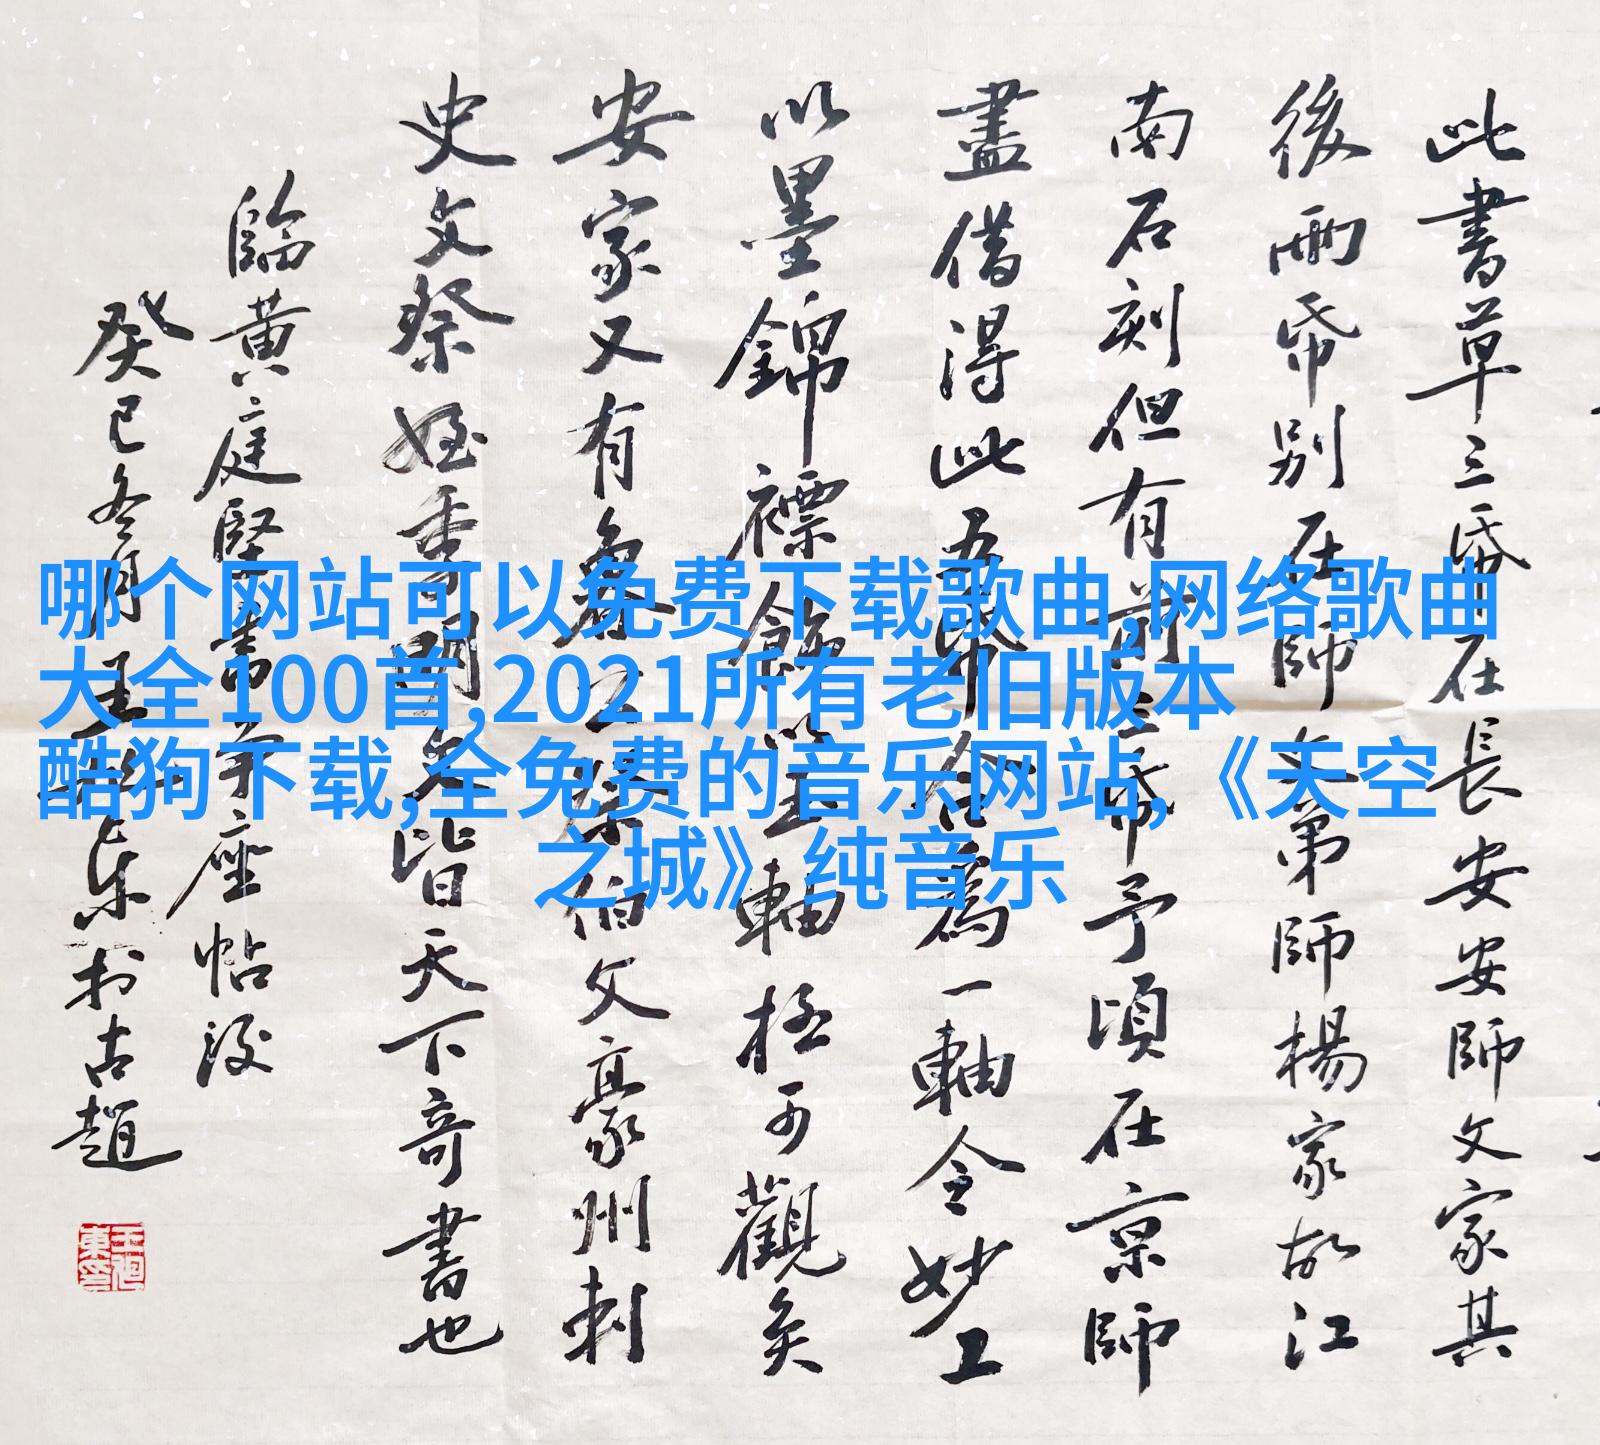 此書草三帋在長安安師文家其
後兩帋別在師文弟師楊家故江
南石刻但有前三帋予頃在京師
盡借得此五帋合為一軸令妙工
以墨錦褾飾以玉軸極可觀矣
安家又有魯公祭伯父豪州刺
史文祭姪季明文皆天下奇書也
臨黃庭堅書爭座帖後
癸巳冬月王東於古趙
哪个网站可以免费下载歌曲,网络歌曲
大全100首,2021所有老旧版本
酷狗下载,全免费的音乐网站,《天空
之城》纯音乐